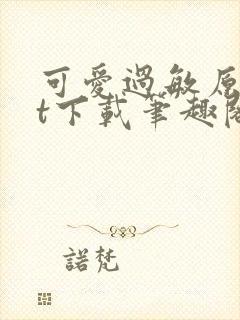 可愛過敏原
t下載筆趣閣
諾梵